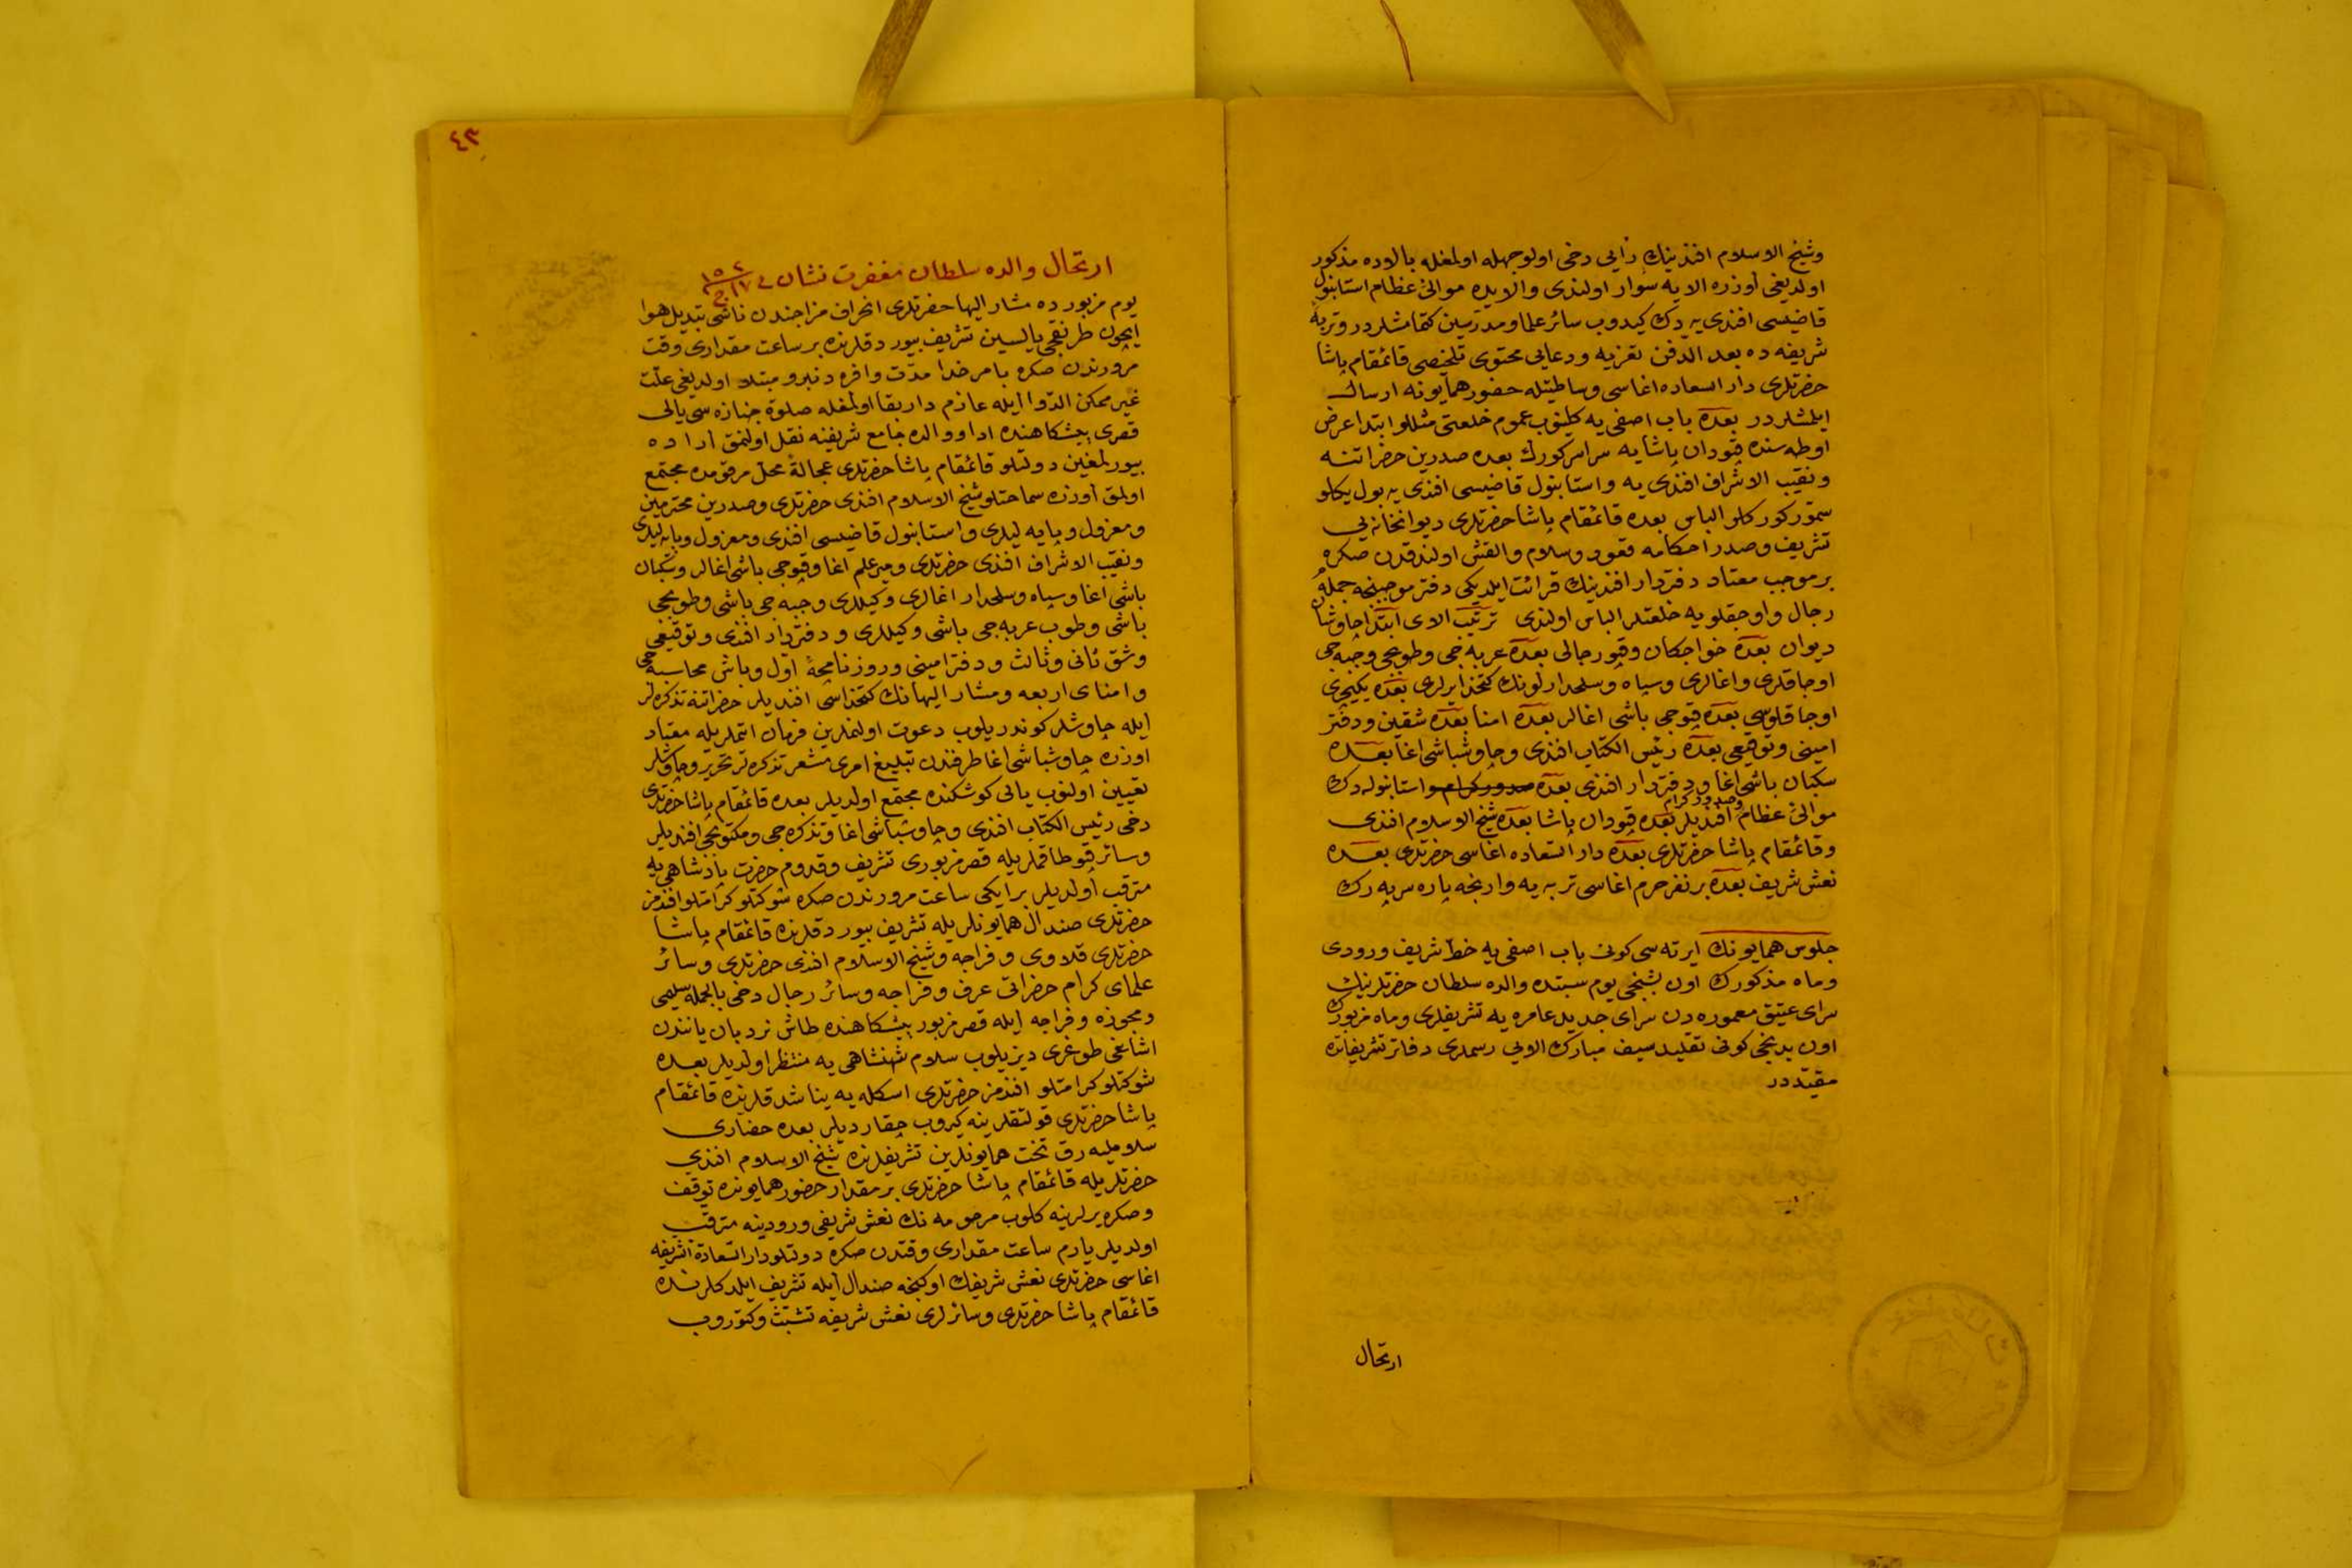 وشیخ الاسلام افندینك رأیی دخی اولوجهله اولمغله بالاده مذكور
اولدیغی اوزره الایه سوار اولندی والایده موالئ عظام استانبول
قاضیسی افندی یه دك كیدوب سائر علما ومدرسین كتمامشلردر وتربۀ
شریفه ده بعد الدفن تعزیه ودعایی محتوی تلخیصی قائمقام پاشا
حضرتلری دار السعاده اغاسی وساطتیله حضور همایونه ارسال
ایلمشلردر بعده باب اصفی یه كلینوب عموم خلعتی مثللو ابتدا عرض
اوطه سنده قپودان پاشایه سراسر كورك بعده صدرین حضراتنه
ونقیب الاشراف افندی یه واستانبول قاضیسی افندی یه بول یكلو
سمور كوركلر الباس بعده قائمقام پاشا حضرتلری دیوانخانه یی
تشریف وصدر احكامه قعود وسلام والقش اولندقدن صكره
بر موجب معتاد دفتردار افندینك قرائت ایلدیكی دفتر موجبنجه جمله
رجال واوجقلویه خلعتلر الباس اولندی ترتیب الای ابتدا چاوشان
دیوان بعده خواجكان وقپو رجالی بعده عربه جی وطوپجی وجبه جی
اوجاقلری واغالری وسپاه وسلحدارلونك كتخدا یرلری بعده یكیچری
اوجاقلوسی بعده قپوجی باشی اغالر بعده امنا بعده شقین ودفتر
امینی وتوقیعی بعده رئیس الكتاب افندی وچاوشباشی اغا بعده
سكبان باشی اغا ودفتردار افندی بعده صدور كرام و استانبوله دك
موالئ عظام وصدور كرام افندیلر بعده قپودان پاشا بعده شیخ الاسلام افندی
وقائمقام پاشا حضرتلری بعده دار السعاده اغاسی حضرتلری بعده
نعش شریف بعده بر نفر حرم اغاسی تربه یه وارنجه پاره سرپه رك
جلوس همایونك ایرته سی كونی باب اصفی یه خط شریف ورودی
وماه مذكورك اون بشنجی یوم سبتده والده سلطان حضرتلرینك
سرای عتیق معموره دن سرای جدید عامره یه تشریفلری وماه مزبورك
اون یدنجی كونی تقلید سیف مبارك الویی رسملری دفاتر تشریفاتده
مقیددر
ارتحال
٤٣
ارتحال والده سلطان مغفرت نشان فی
یوم مزبورده مشار الیها حضرتلری انحراف مزاجندن ناشی تبدیل هوا
ایچون طرنقجی یالیسین تشریف بیوردقلرنده بر ساعت مقداری وقت
مرورندن صكره بامر خدا مدت وافره دنبرو مبتلا اولدیغی علت
غیر ممكن الدوا ایله عازم دار بقا اولمغله صلوة جنازه سی یالی
قصری پیشكاهنده ادا ووالده جامع شریفنه نقل اولنمق اراده
بیورلمغین دولتلو قائمقام پاشا حضرتلری عجالة محل مرقومده مجتمع
اولمق اوزره سماحتلو شیخ الاسلام افندی حضرتلری وصدرین محترمین
ومعزول وپایه لیلری واستانبول قاضیسی افندی ومعزول وپایه لیلری
ونقیب الاشراف افندی حضرتلری ومیر علم اغا وقپوجی باشی اغالر وسكبان
باشی اغا وسپاه وسلحدار اغالری وكیللری وجبه جی باشی وطوپجی
باشی وطوپ عربه جی باشی وكیللری ودفتردار افندی وتوقیعی
وشق ثانی وثالث ودفتر امینی وروزنامچۀ اول وباش محاسبه جی
وامنای اربعه ومشار الیهانك كتخداسی افندیلر حضراتنه تذكره لر
ایله چاوشلر كوندریلوب دعوت اولنملرین فرمان اتملریله معتاد
اوزره چاوشباشی اغا طرفندن تبلیغ امری مشعر تذكره لر تحریر وچاوشلر
تعیین اولنوب یالی كوشكنده مجتمع اولدیلر بعده قائمقام پاشا حضرتلری
دخی رئیس الكتاب افندی وچاوشباشی اغا وتذكره جی ومكتوبجی افندیلر
وسائر قپو طاقملریله قصر مزبوری تشریف وقدوم حضرت پادشاهی یه
مترقب اولدیلر بر ایكی ساعت مرورندن صكره شوكتلو كرامتلو افندمز
حضرتلری صندال همایونلریله تشریف بیوردقلرنده قائمقام پاشا
حضرتلری قلاوی وفراجه وشیخ الاسلام افندی حضرتلری وسائر
علمای كرام حضراتی عرف وفراجه وسائر رجال دخی بالجمله سلیمی
ومجوزه وفراجه ایله قصر مزبور پیشكاهنده طاش نردبان یانندن
اشاغی طوغری دیزیلوب سلام شهنشاهی یه منتظر اولدیلر بعده
شوكتلو كرامتلو افندمز حضرتلری اسكله یه یناشدقلرنده قائمقام
پاشا حضرتلری قولتقلرینه كیروب چقاردیلر بعده حضاری
سلاملیه رق تخت همایونلرین تشریفلرنده شیخ الاسلام افندی
حضرتلریله قائمقام پاشا حضرتلری بر مقدار حضور همایونده توقف
وصكره یرلرینه كلوب مرحومه نك نعش شریفی ورودینه مترقب
اولدیلر یارم ساعت مقداری وقتدن صكره دولتلو دار السعادة الشریفه
اغاسی حضرتلری نعش شریفك اوكنجه صندال ایله تشریف ایلدكلرنده
قائمقام پاشا حضرتلری وسائرلری نعش شریفه تشبث وكتوروب